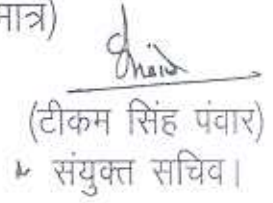 मात्र)
(टीकम सिंह पंवार)
संयुक्त सचिव।